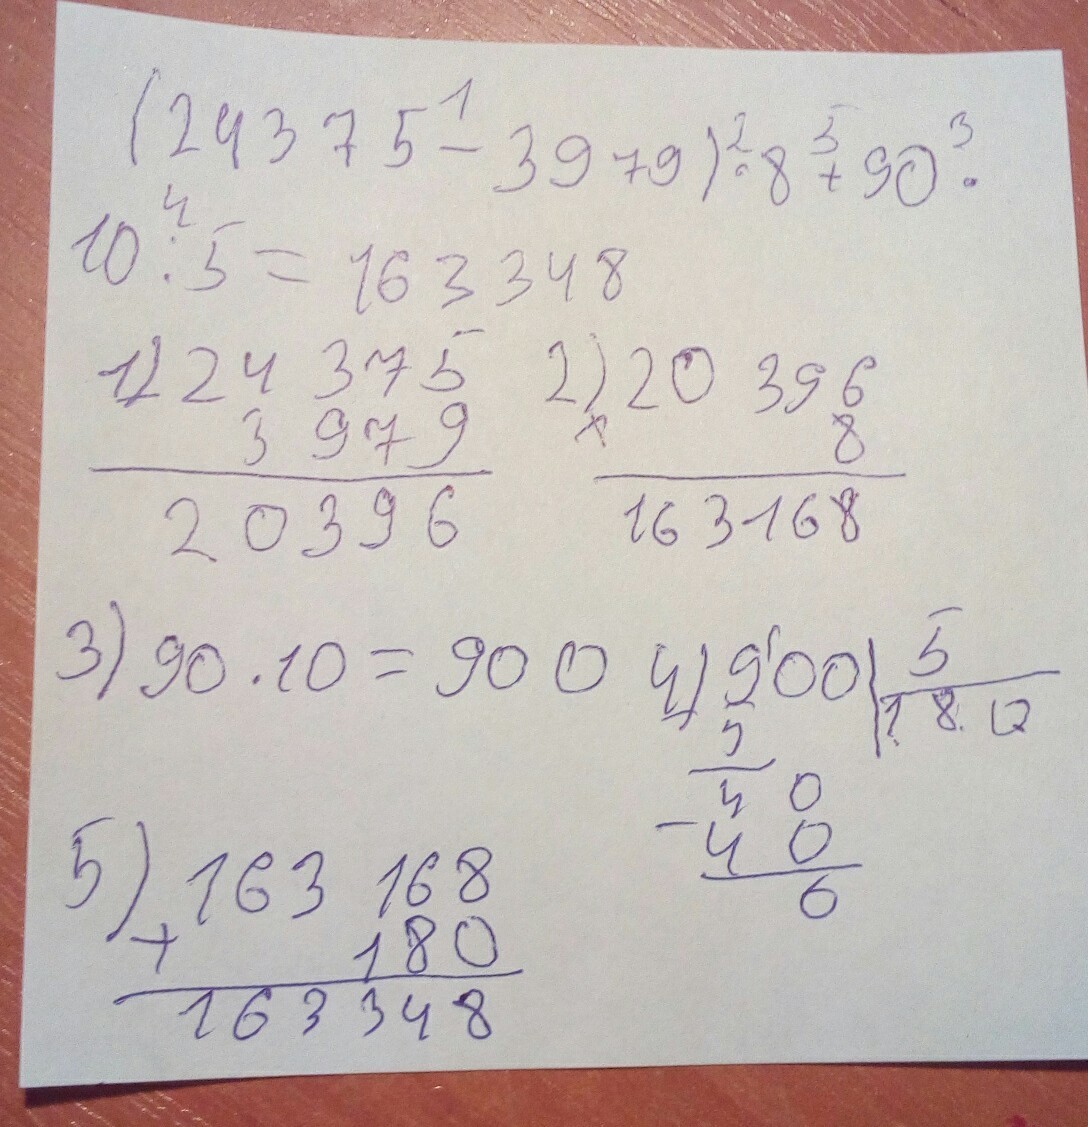 (24375 1 - 3979) 2 · 8 5 + 90 3 ·
10 4 : 5 = 163348
1) 24 375 2) 20 396
3 979 × 8
20396 163168
3) 90 · 10 = 900 4) 900 | 5
5 180
40
- 40
0
5) 163 168
+ 180
163 348